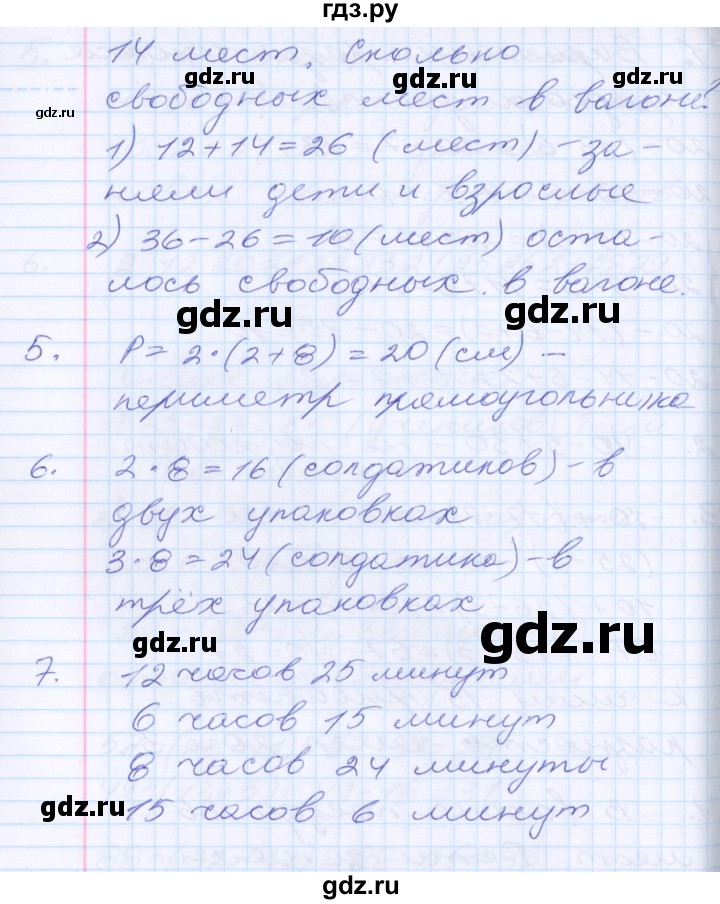 гдз.ру
14 мест. Сколько
gdz.ru gdz.ru
gdz.ru
свободных мест в вагоне?
1) 12+14=26 (мест) - за-
няли дети и взрослые
2) 36-26=10 (мест) оста-
лось свободных в вагоне.
gdz.ru gdz.ru
5. P = 2·(2+8) = 20 (см) -
периметр прямоугольника
6. 2·8=16 (солдатиков) - в
двух упаковках
3·8=24 (солдатика) - в
трёх упаковках
gdz.ru gdz.ru
7. 12 часов 25 минут
6 часов 15 минут
8 часов 24 минуты
gdz.ru
15 часов 6 минут
gdz.ru